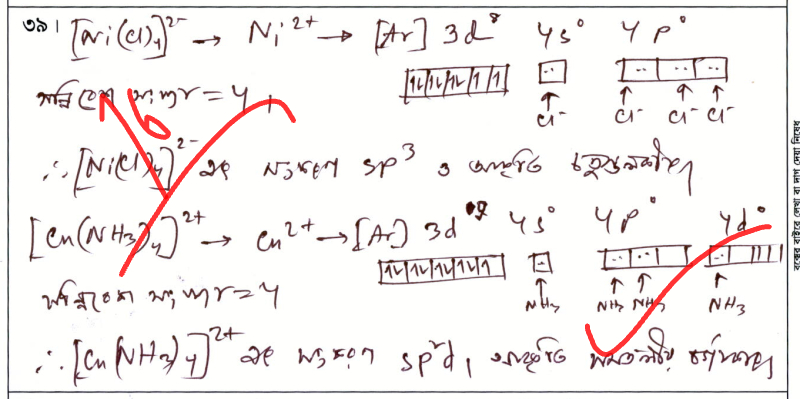 ৩৯। [Ni(Cl)₄]²⁻ → Ni²⁺ → [Ar] 3d⁸ 4s⁰ 4p⁰
Cl⁻ Cl⁻ Cl⁻ Cl⁻
সন্নিবেশ সংখ্যা = 4,
∴ [Ni(Cl)₄]²⁻ এর সংকরণ sp³ ও আকৃতি চতুস্তলকীয়।
[Cu(NH3)₄]²⁺ → Cu²⁺ → [Ar] 3d⁹ 4s⁰ 4p⁰ 4d⁰
NH₃ NH₃ NH₃ NH₃
সন্নিবেশ সংখ্যা = 4
∴ [Cu(NH3)₄]²⁺ এর সংকরণ sp²d, আকৃতি সমতলীয় বর্গাকার।
বক্সের বাইরে লেখা বা দাগ দেয়া নিষেধ